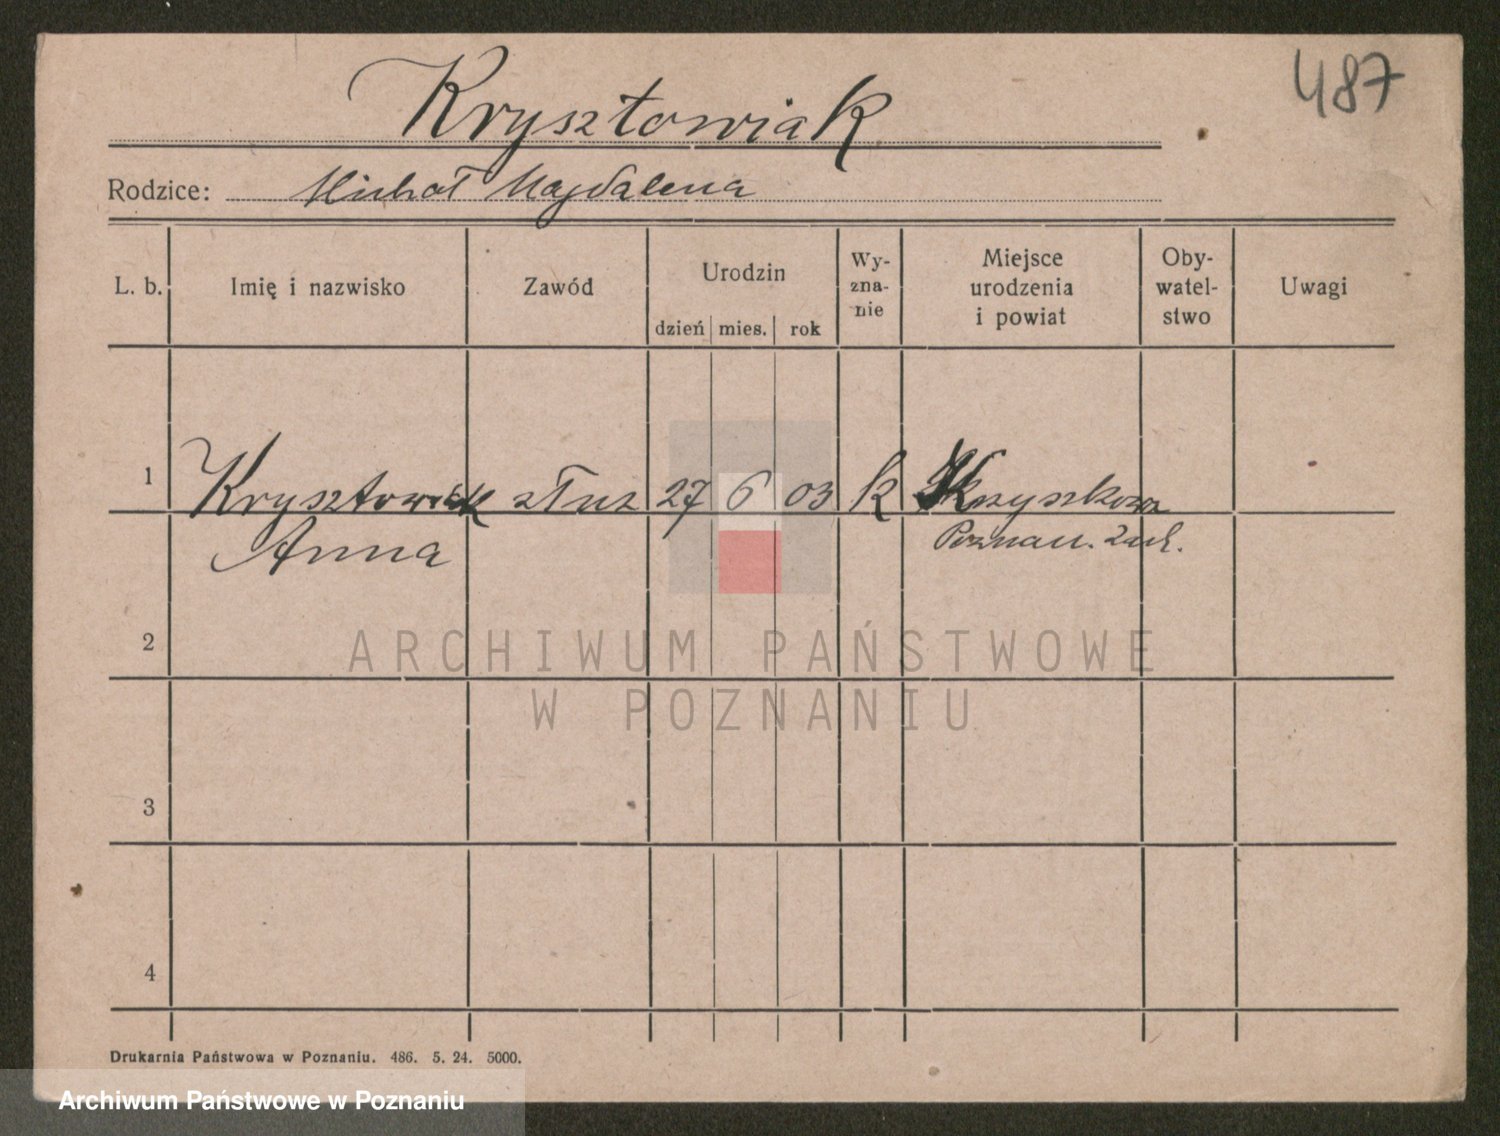 487
Krysztowiak
Rodzice: Michał Magdalena
L. b. Imię i nazwisko Zawód Urodzin dzień mies. rok Wy-zna-nie Miejsce urodzenia i powiat Oby-watel-stwo Uwagi
1 Krysztowiak służ 27 6 03 k
Anna Poznań. Zach.
2
3
4
Drukarnia Państwowa w Poznaniu. 486. 5. 24. 5000.
ARCHIWUM PAŃSTWOWE
W POZNANIU
Archiwum Państwowe w Poznaniu